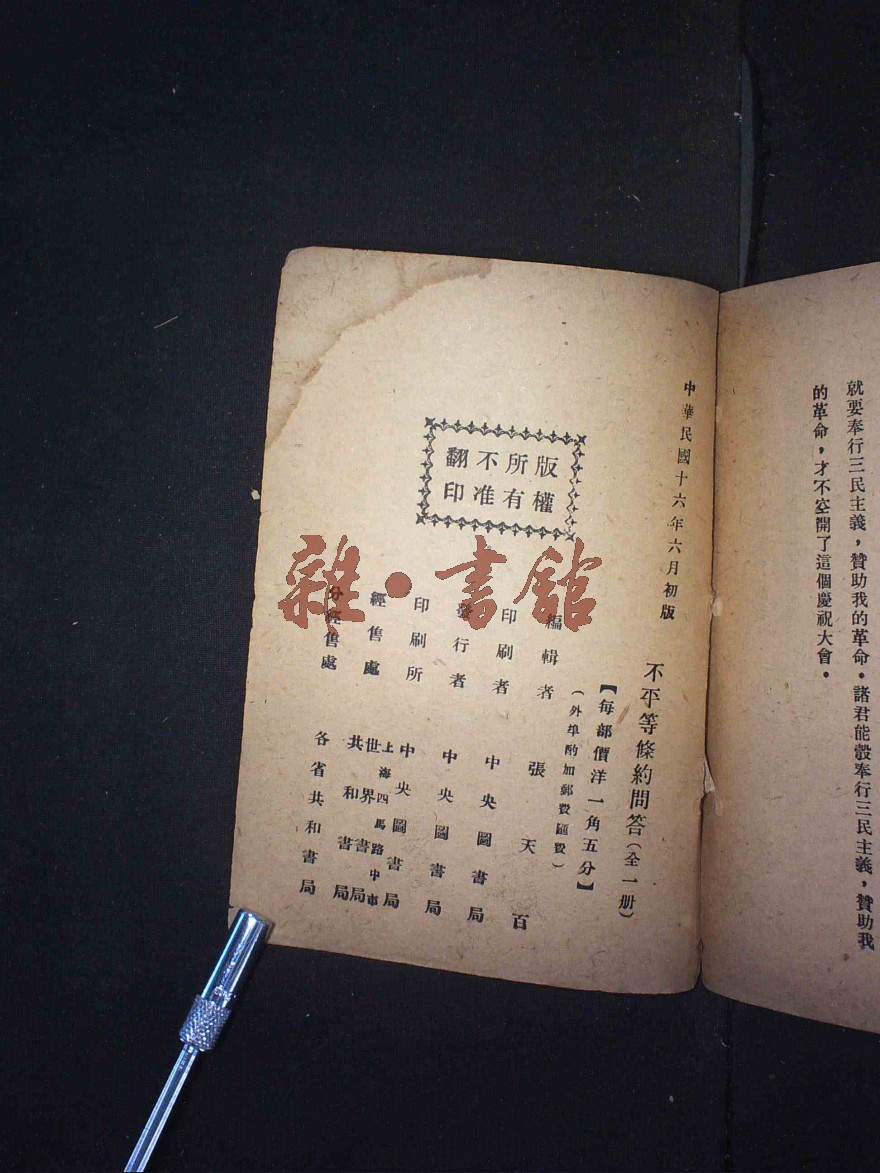 就要奉行三民主義，贊助我的革命。諸君能彀奉行三民主義，贊助我
的革命，才不空開了這個慶祝大會。
中華民國十六年六月初版
不平等條約問答（全一册）
【每部價洋一角五分】
（外埠酌加郵費匯費）
版權
所有
不准
翻印
編輯者 張天百
印刷者 中央圖書局
發行者 中央圖書局
印刷所 中央圖書局
上海四馬路中市
經售處 世界書局
共和書局
分經售處 各省共和書局
雜·書館